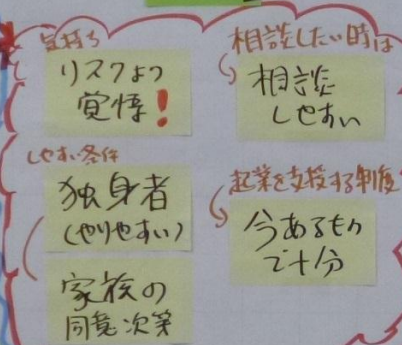 気持ち
リスクより
覚悟！
しやすい条件
独身者
(やりやすい)
家族の
同意次第
相談したい時は
相談
しやすい
起業を支援する制度
今あるもの
で十分